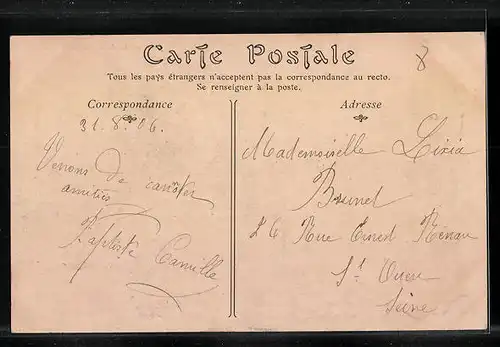 8
Carte Postale
Tous les pays étrangers n'acceptent pas la correspondance au recto.
Se renseigner à la poste.
Correspondance
31.8.06.
Venons de
amitiés
Camille
Adresse
Mademoiselle
Brunel
Rue Ernest Renan
St Ouen
Seine